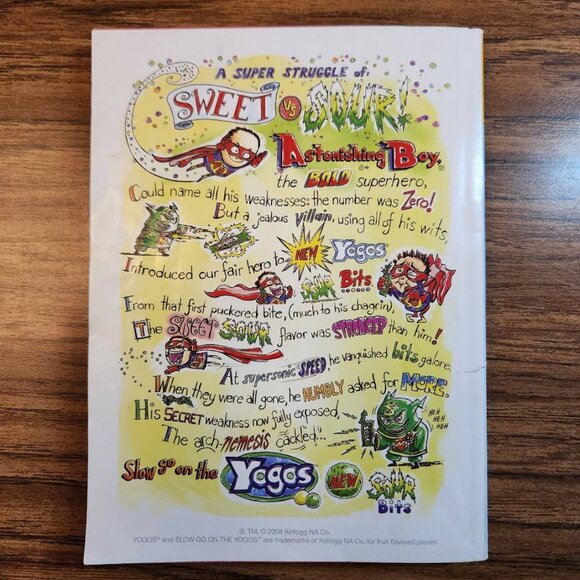 A SUPER STRUGGLE of:
SWEET vs SOUR!
Astonishing Boy,
the BOLD superhero,
Could name all his weaknesses: the number was Zero!
But a jealous villain, using all of his wits,
Introduced our fair hero to NEW Yogos
SOUR Bits
From that first puckered bite, (much to his chagrin),
The SWEET SOUR flavor was STRONGER than him!
At supersonic SPEED he vanquished bits galore.
When they were all gone, he HUMBLY asked for MORE.
His SECRET weakness now fully exposed,
The arch-nemesis cackled...
HEH HEH HEH
Slow go on the Yogos NEW SOUR Bits
®, TM, © 2008 Kellogg NA Co.
YOGOS® and SLOW GO ON THE YOGOS™ are trademarks of Kellogg NA Co. for fruit flavored pieces